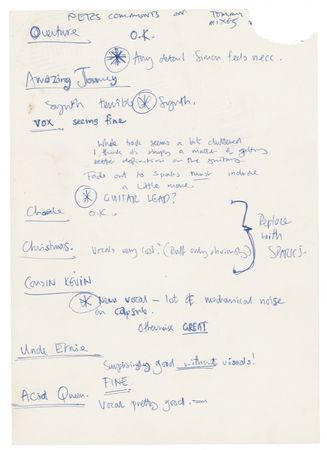 PETES COMMENTS ON TOMMY
MIXES
Overture O.K.
* Any detail Simon feels necc.
Amazing Journey
Synth terrible * Synth.
VOX seems fine
Whole track seems a bit cluttered
I think its simply a matter of getting
better definition on the guitars.
Fade out to sparks must include
a little more.
* GUITAR LEAD?
O.K.
Christmas. Vocals very lost? (Ruff only obviously)
Replace
with
SPARKS.
Cousin KEVIN
* New vocal – lot of mechanical noise
on capsule.
Otherwise GREAT
Uncle Ernie
Surprisingly good without visuals!
FINE
Acid Queen. Vocal pretty good.